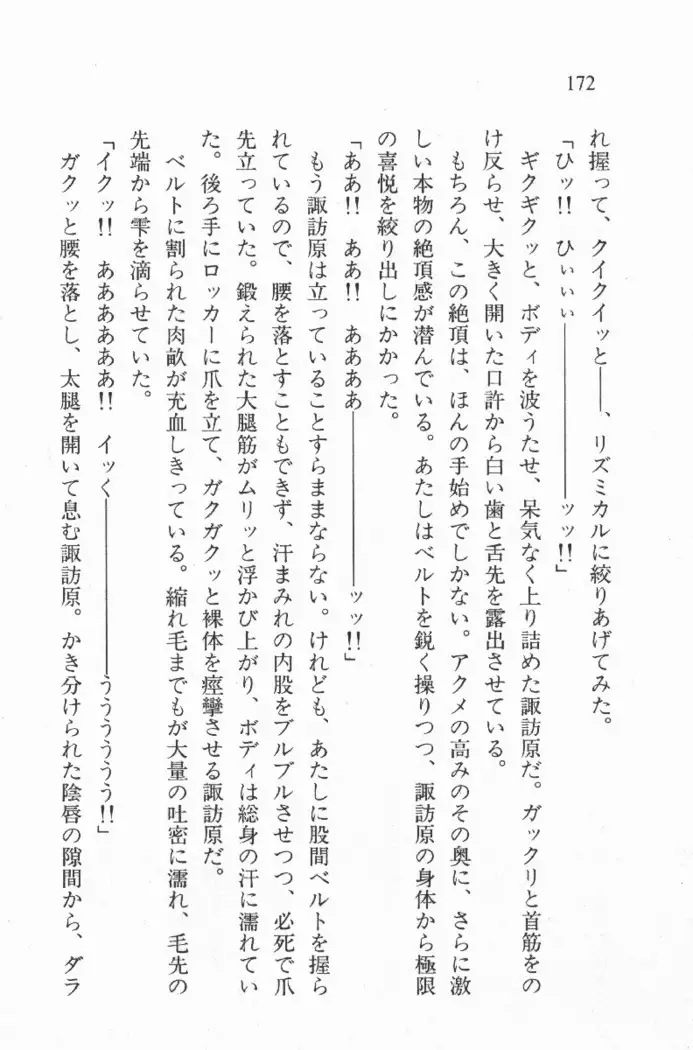 172
れ握って、クイクイッと――、リズミカルに絞りあげてみた。
「ひッ!! ひぃぃぃ――――――――ッッ!!」
ギクギクッと、ボディを波うたせ、呆気なく上り詰めた諏訪原だ。ガックリと首筋をの
け反らせ、大きく開いた口許から白い歯と舌先を露出させている。
もちろん、この絶頂は、ほんの手始めでしかない。アクメの高みのその奥に、さらに激
しい本物の絶頂感が潜んでいる。あたしはベルトを鋭く操りつつ、諏訪原の身体から極限
の喜悦を絞り出しにかかった。
「ああ!! ああ!! ああああ――――――――ッッ!!」
もう諏訪原は立っていることすらままならない。けれども、あたしに股間ベルトを握ら
れているので、腰を落とすこともできず、汗まみれの内股をブルブルさせつつ、必死で爪
先立っていた。鍛えられた大腿筋がムリッと浮かび上がり、ボディは総身の汗に濡れてい
た。後ろ手にロッカーに爪を立て、ガクガクッと裸体を痙攣させる諏訪原だ。
ベルトに割られた肉畝が充血しきっている。縮れ毛までもが大量の吐密に濡れ、毛先の
先端から雫を滴らせていた。
「イクッ!! ああああああ!! イッく――――――――うううううう!!」
ガクッと腰を落とし、太腿を開いて息む諏訪原。かき分けられた陰唇の隙間から、ダラ